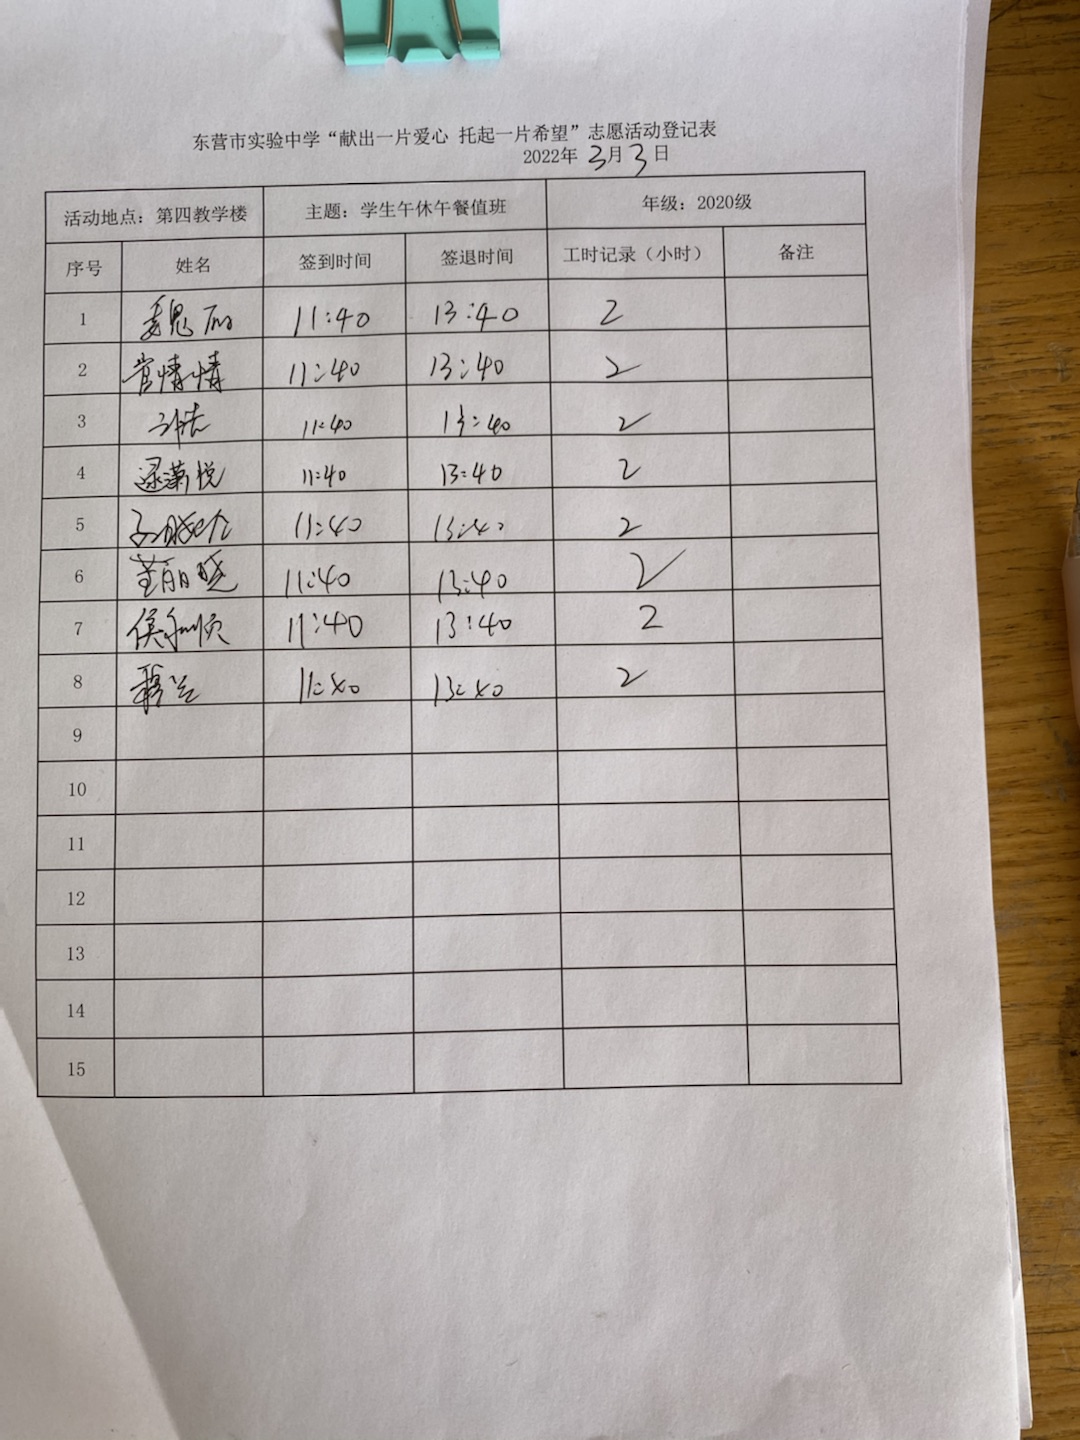 东营市实验中学“献出一片爱心 托起一片希望”志愿活动登记表
2022年 3月 3 日
活动地点：第四教学楼 主题：学生午休午餐值班 年级：2020级
序号 姓名 签到时间 签退时间 工时记录（小时） 备注
1 魏丽 11:40 13:40 2
2 常情情 11:40 13:40 2
3 11:40 13:40 2
4 逯潇悦 11:40 13:40 2
5 11:40 13:40 2
6 董丽晓 11:40 13:40 2
7 侯和顺 11:40 13:40 2
8 11:40 13:40 2
9
10
11
12
13
14
15